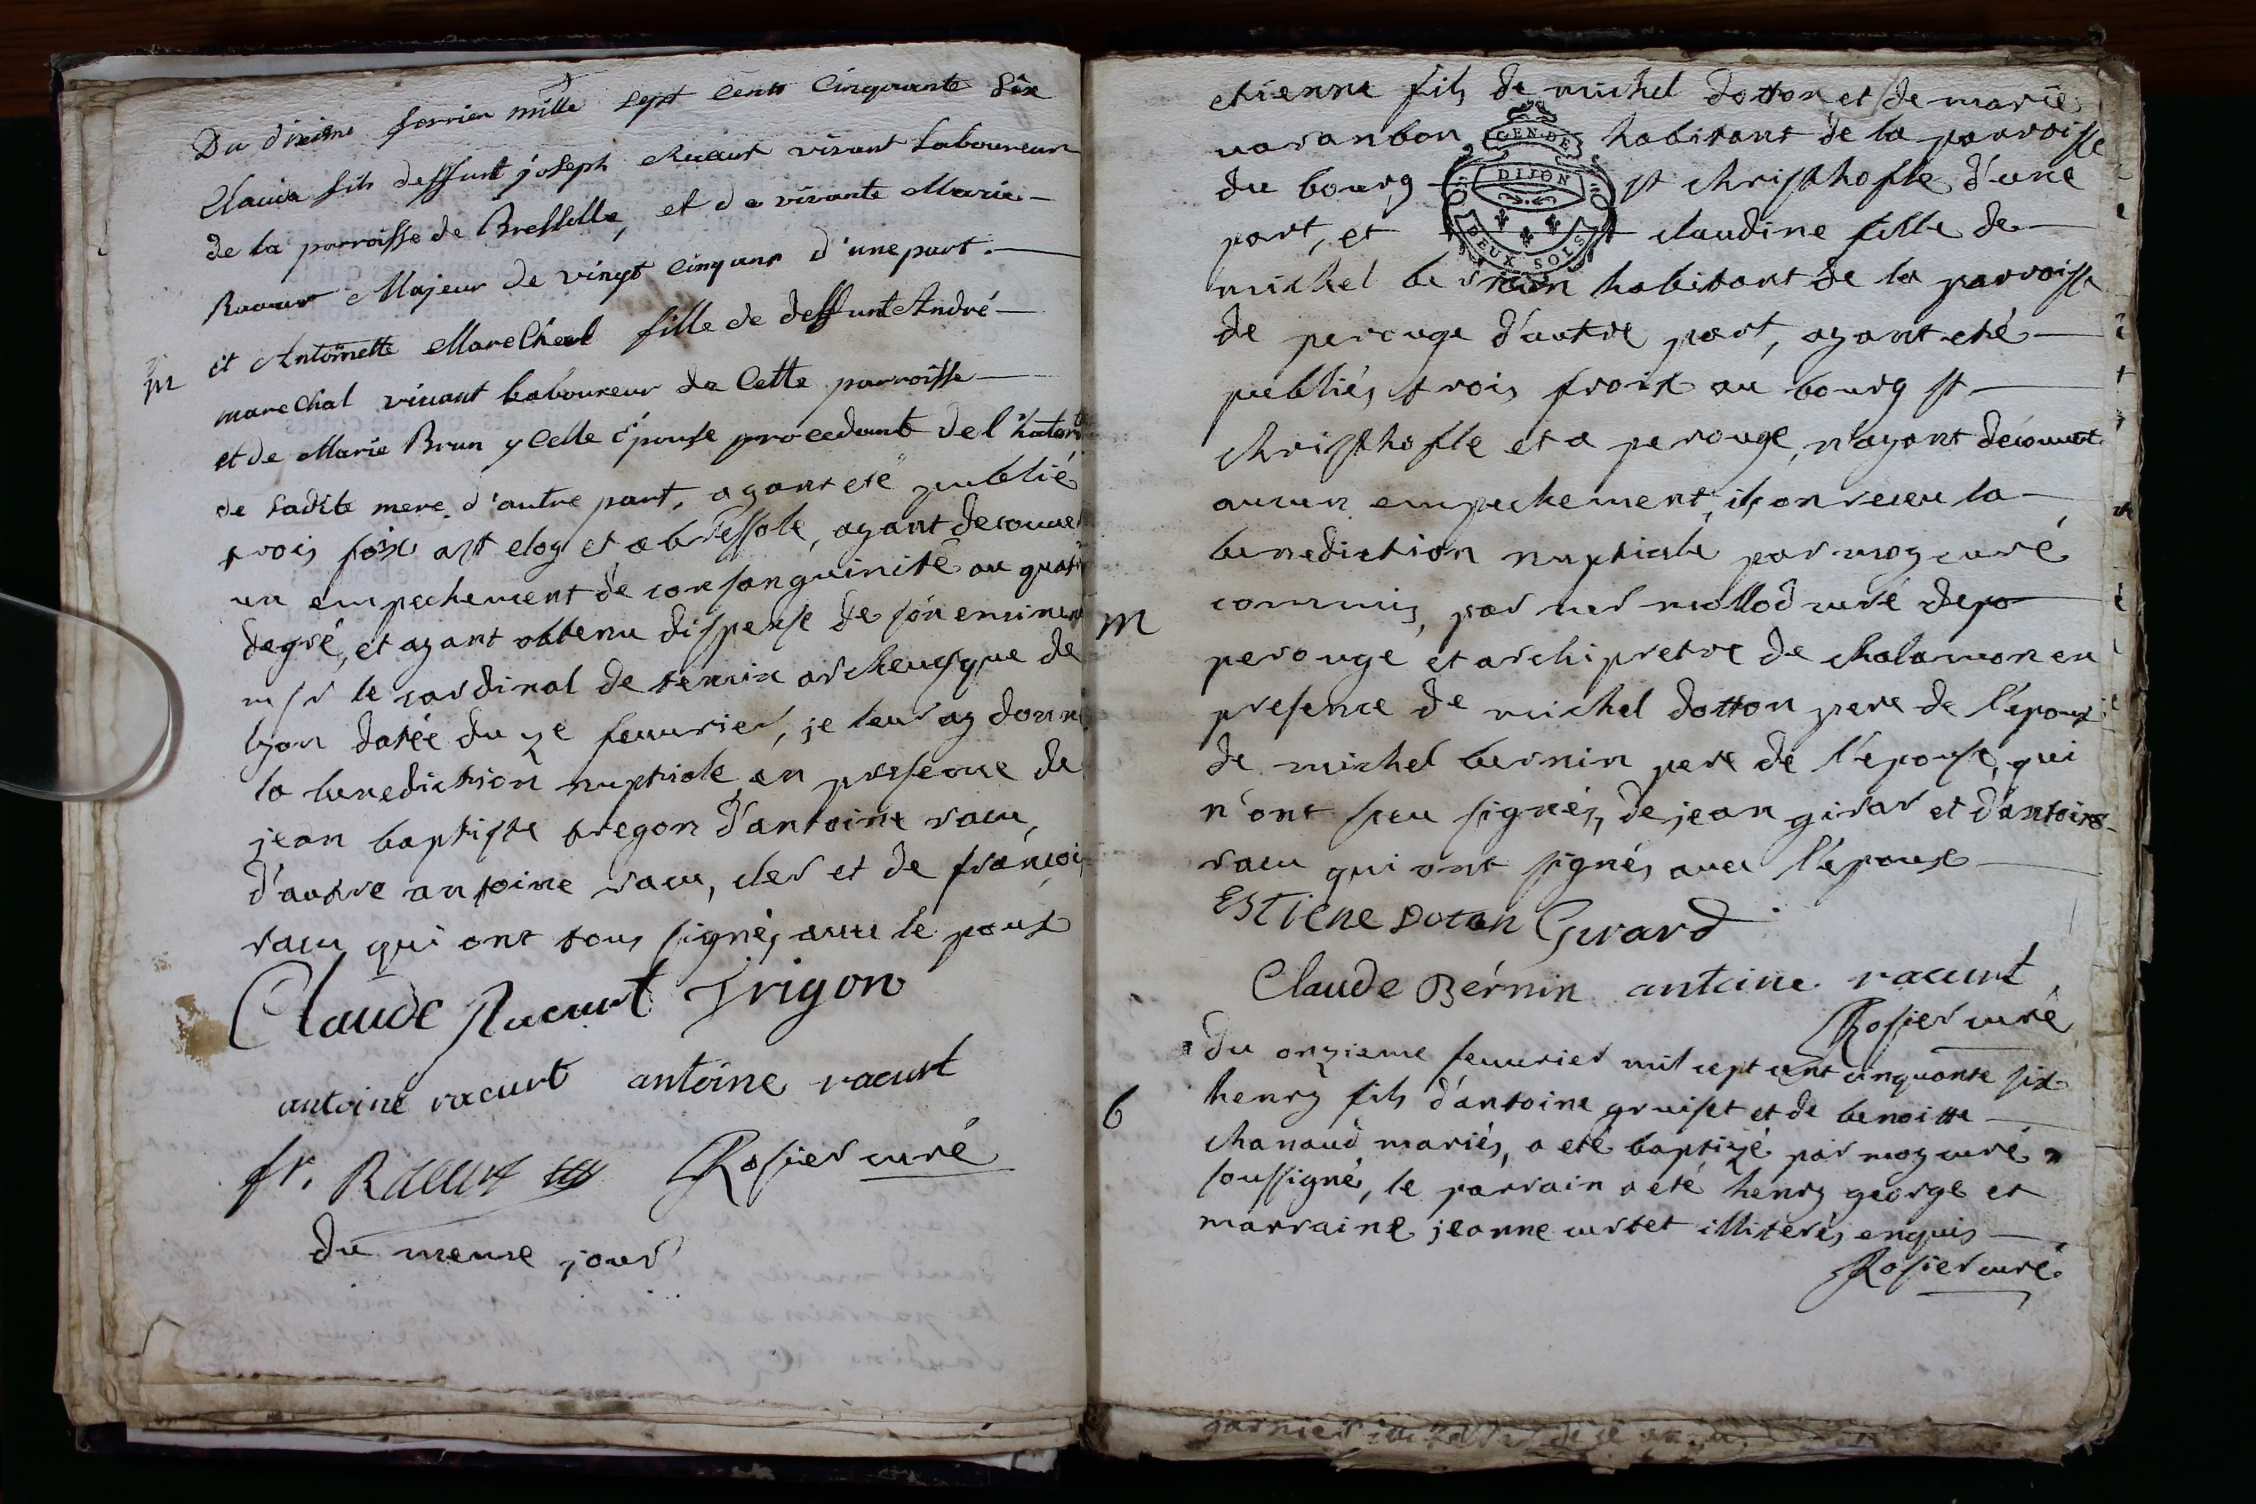 Du dixieme fevrier mille sept cents Cinquante Six
Claude fils deffunt joseph Racurt vivant Laboureur
de la parroisse de Bressolle, et de vivante Marie
Racurt Majeur de vingt Cinq ans d'une part.
m
et Antoinette Marechal fille de deffunt André
marechal vivant Laboureur de Cette parroisse
et de Marie Brun ycelle épouse procedante de l'hatorité
de Ladite mere d'autre part, ayant eté publié
trois foix a st eloy et a bressole, ayant decouvert
un empechement de consanguinité au quatr
degré, et ayant obtenu dispense de son eminen
mgr le cardinal de tencin archevesque de
lyon datée du 7e feuvrier, je leur ay donné
la benediction nuptiale en presence de
jean baptiste tregon d'antoine racu,
d'autre antoine racu, cler et de françois
racu qui ont tous signés avec le poux
Claude Racurt Trigon
antoine racurt antoine racurt
fr. Racurt Rosier curé
du meme jour
etienne fils de michel dotton et de marie
varanbon habitant de la parroisse
GEN. DE
DIJON
DEUX SOLS
du bourg st christhofle d'une
part, et claudine fille de
michel bernin habitant de la parroisse
de perouge d'autre part, ayant eté
publiés trois froix au bourg st
christhofle et a perouge, n'ayant decouvert
aucun empechement, ils on receu la
benediction nuptiale par moy curé
m
commis, par mr mollod curé de po
perouge et archipretre de chalamon en
presence de michel dotton pere de l'epoux
de michel bernin pere de l'epouse, qui
n'ont sceu signés, de jean girar et d'antoine
racu qui ont signés avec l'epoux
ESTIENE Doton Girard
Claude Bérnin antoine racurt
Rosier curé
du onzieme feuvrier mil cept cent cinquante six
b
henry fils d'antoine gruiset et de benoitte
chanaud mariés, a eté baptizé par moy curé
soussigné, le parrain a eté henry george et
marraine jeanne curtet illiterés enquis
Rosier curé
garnier